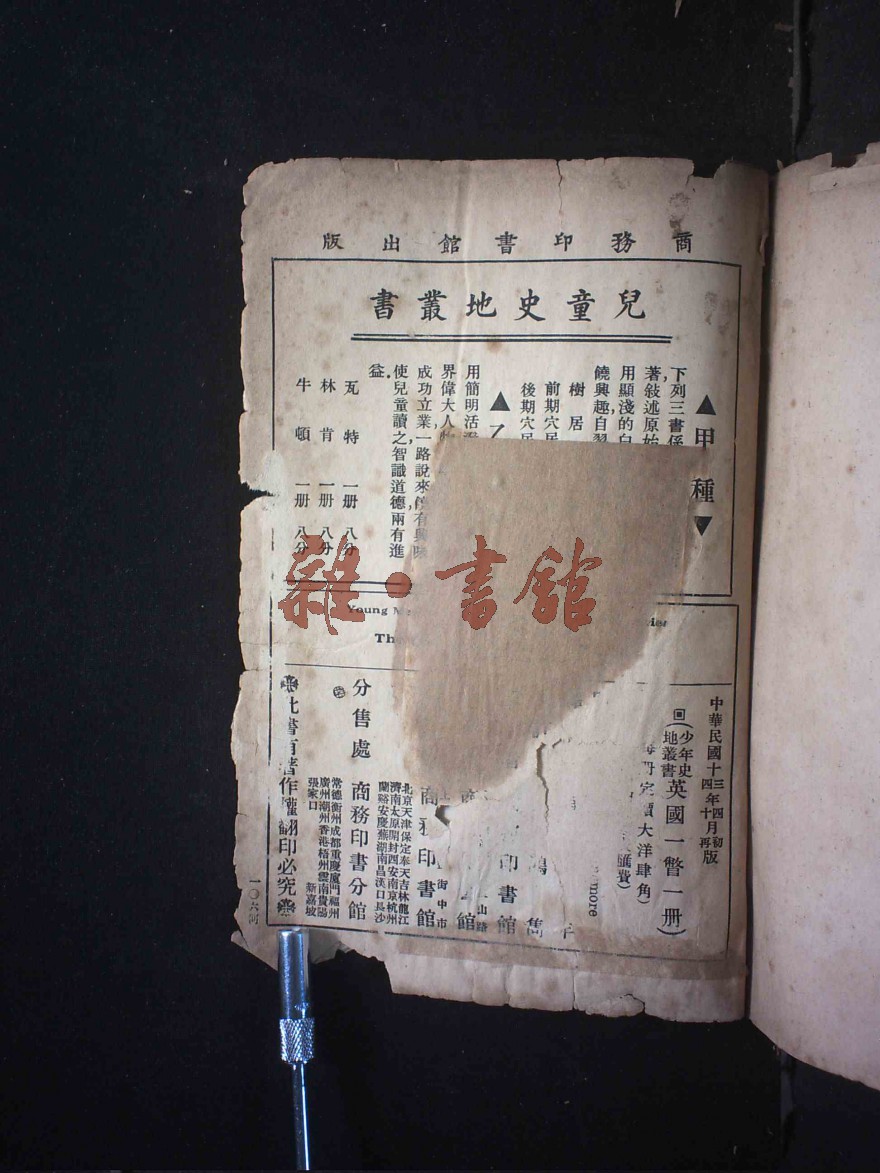 商務印書館出版
兒童史地叢書
▲甲種▼
下列三書係
著敍述原始
用顯淺的白
饒興趣,自習
樹居
前期穴居
後期穴居
▲乙
用簡明活潑
界偉大人物
成功立業,一路說來,饒有興味
使兒童讀之,智識道德,兩有進
益.
瓦特 一册 八分
林肯 一册 八分
牛頓 一册 八分
雜·書館
Young
中華民國十三年四月初版
四年十月再版
回(少年史地叢書英國一瞥一册)
每册定價大洋肆角
匯費)
more
雋
印書館
山路
館
街中市
商務印書館
北京天津保定奉天吉林龍江
濟南太原開封西安南京杭州
蘭谿安慶蕪湖南昌漢口長沙
分售處 商務印書分館
常德衡州成都重慶廈門福州
廣州潮州香港梧州雲南貴陽
張家口 新嘉坡
此書有著作權翻印必究
一〇六河